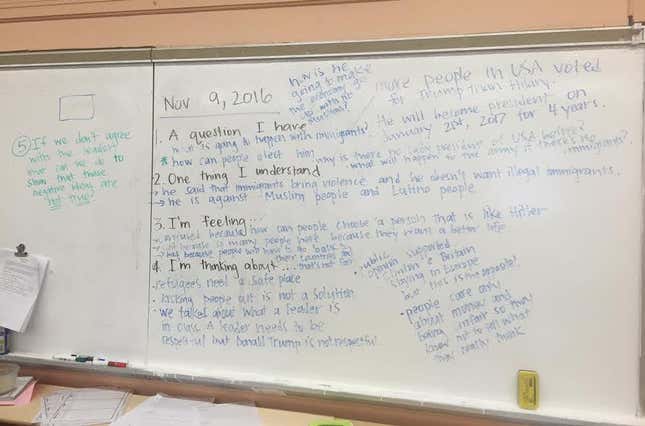 Nov 9, 2016
how is he
going to make
the economy
go up with no
more people in USA voted
for Trump than Hillary.
He will become president on
January 20st, 2017 for 4 years.
1. A question I have
what is going to happen with immigrants?
* how can people elect him
why is there no lady president of USA before?
what will happen to the army if there's no
immigrants?
2. One thing I understand
→ he said that immigrants bring violence and he doesn't want illegal immigrants.
→ he is against Muslim people and Latino people.
3. I'm feeling...
confused because how can people choose a person that is like Hitler
because is many people here because they want a better life
because people will have to go back to
their countries and
that's not fair
4. I'm thinking about...
refugees need a safe place
• kicking people out is not a solution
• we talked about what a leader is
in class. A leader needs to be
respectful but Donald Trump is not respectful.
• public
opinion supported
Clinton & Britain
staying in Europe
but this is the opposite!
• people care only
about money and
being unfair so now
know not to tell what
they really think
⑤ If we don't agree
with the leader,
what can we do to
show that those
negative ideas are
not true?